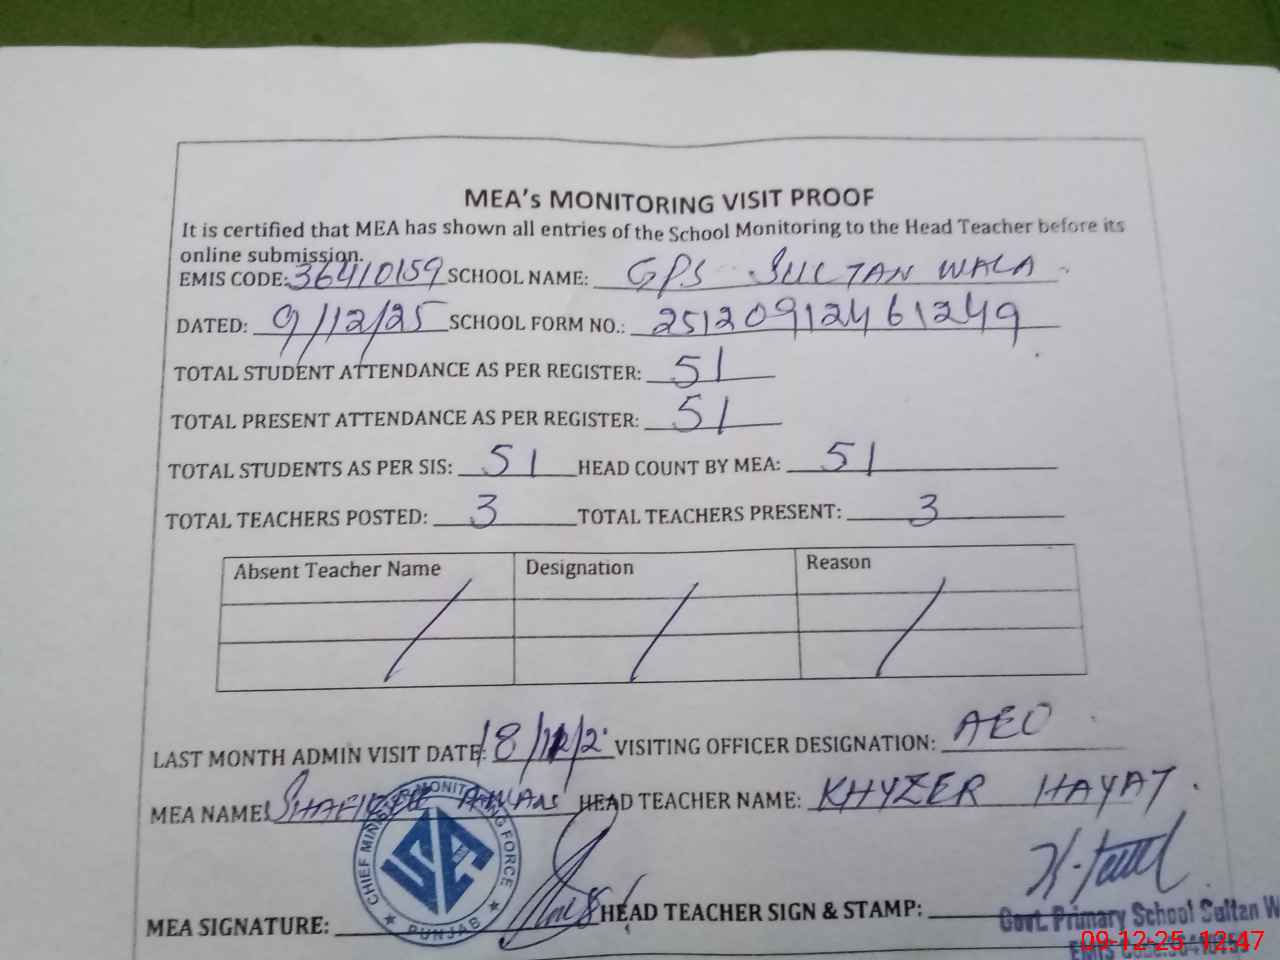 MEA's MONITORING VISIT PROOF
It is certified that MEA has shown all entries of the School Monitoring to the Head Teacher before its
online submission.
EMIS CODE: 36410159 SCHOOL NAME: GPS SULTAN WALA
DATED: 9/12/25 SCHOOL FORM NO.: 25120912461249
TOTAL STUDENT ATTENDANCE AS PER REGISTER: 51
TOTAL PRESENT ATTENDANCE AS PER REGISTER: 51
TOTAL STUDENTS AS PER SIS: 51 HEAD COUNT BY MEA: 51
TOTAL TEACHERS POSTED: 3 TOTAL TEACHERS PRESENT: 3
Absent Teacher Name Designation Reason
LAST MONTH ADMIN VISIT DATE: VISITING OFFICER DESIGNATION: AEO
MEA NAME: HEAD TEACHER NAME: KHYZER HAYAT
CHIEF MINISTER MONITORING FORCE
PUNJAB
MEA SIGNATURE: HEAD TEACHER SIGN & STAMP:
Govt. Primary School Sultan W
EMIS Code:
09-12-25 12:47